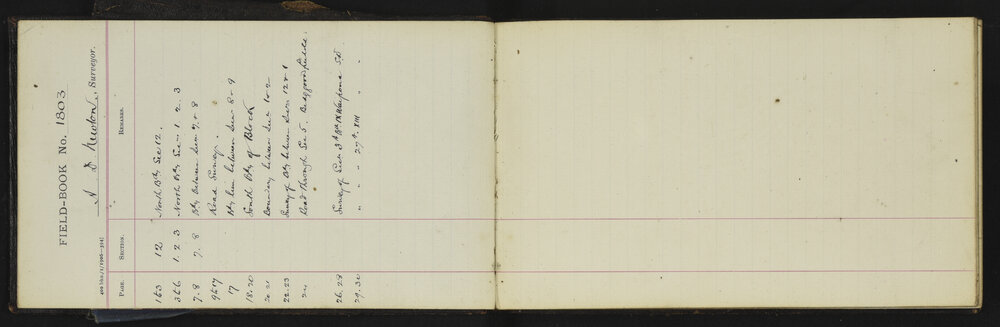 FIELD-BOOK No. 1803
A. D. Newton, Surveyor.
PAGE. SECTION. REMARKS.
1 to 3 12 North Bdy Sec 12.
3 to 6 1. 2 3 North Bdy Secns 1. 2. 3
7. 8 7. 8 Bdy between Secns 7 & 8
9 to 17 Road Survey.
17 Bdy line between Secns 8 & 9
18. 20 South Bdy of Block
20 21 Boundary between Secns 1 & 2
22. 23 Survey of Bdy between Secns 12 & 1
24 Road through Sec 5.
26. 28 Survey of Secn 3 Blk IX Waipara SD
29. 30 " " " 27 " XIII " "